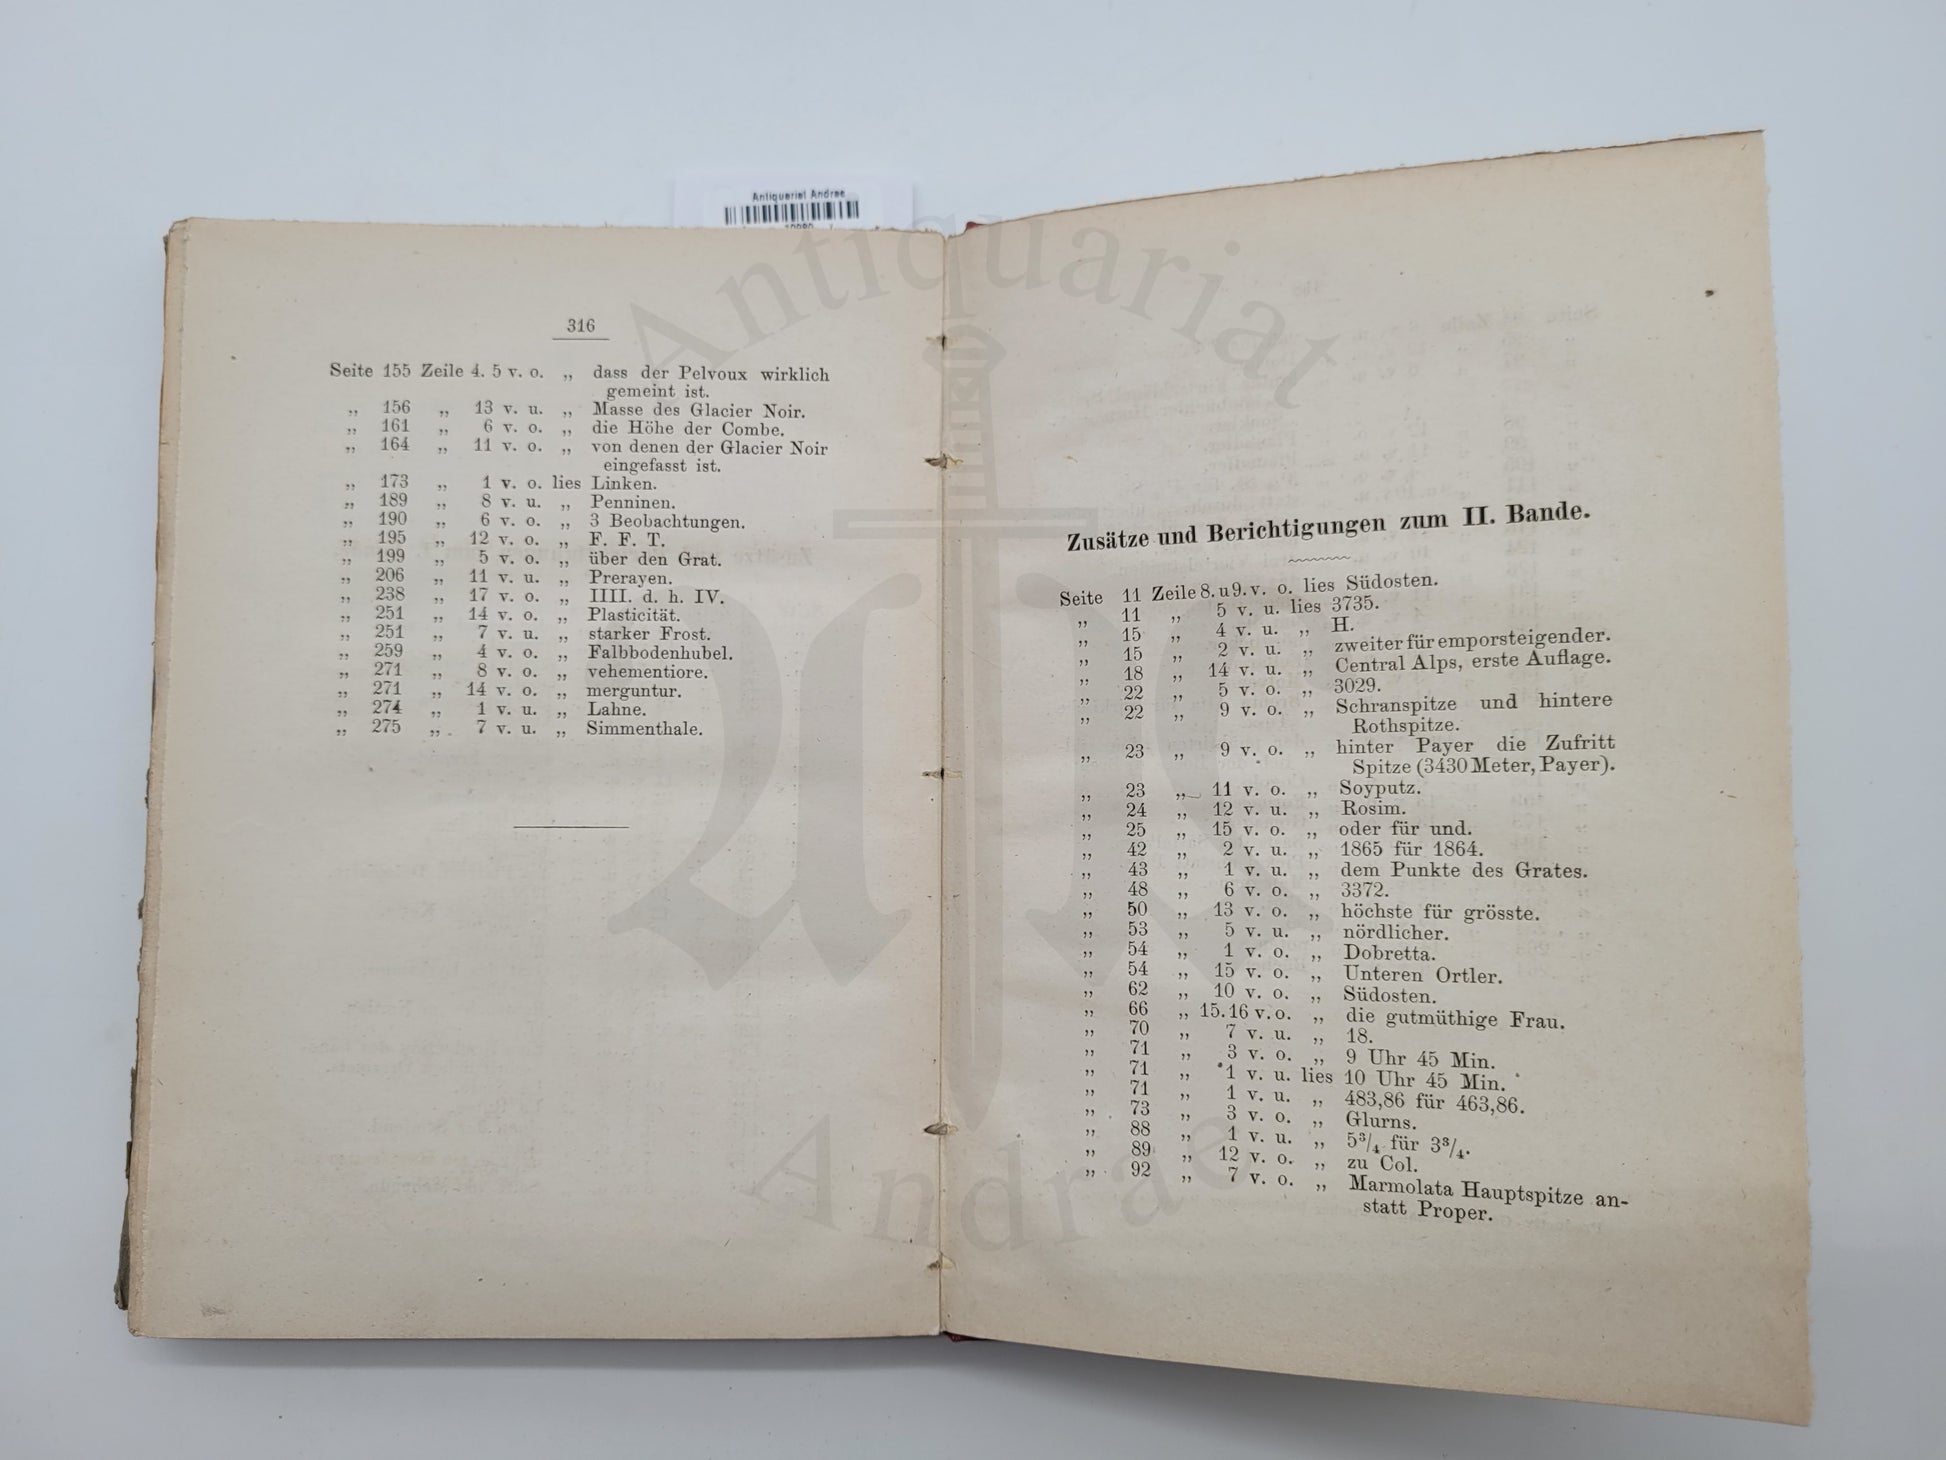 Antiquariat Andrae
316
Seite 155 Zeile 4. 5 v. o. „ dass der Pelvoux wirklich
gemeint ist.
„ 156 „ 13 v. u. „ Masse des Glacier Noir.
„ 161 „ 6 v. o. „ die Höhe der Combe.
„ 164 „ 11 v. o. „ von denen der Glacier Noir
eingefasst ist.
„ 173 „ 1 v. o. lies Linken.
„ 189 „ 8 v. u. „ Penninen.
„ 190 „ 6 v. o. „ 3 Beobachtungen.
„ 195 „ 12 v. o. „ F. F. T.
„ 199 „ 5 v. o. „ über den Grat.
„ 206 „ 11 v. u. „ Prerayen.
„ 238 „ 17 v. o. „ IIII. d. h. IV.
„ 251 „ 14 v. o. „ Plasticität.
„ 251 „ 7 v. u. „ starker Frost.
„ 259 „ 4 v. o. „ Falbbodenhubel.
„ 271 „ 8 v. o. „ vehementiore.
„ 271 „ 14 v. o. „ merguntur.
„ 274 „ 1 v. u. „ Lahne.
„ 275 „ 7 v. u. „ Simmenthale.
Zusätze und Berichtigungen zum II. Bande.
Seite 11 Zeile 8. u 9. v. o. lies Südosten.
„ 11 „ 5 v. u. lies 3735.
„ 15 „ 4 v. u. „ H.
„ 15 „ 2 v. u. „ zweiter für emporsteigender.
„ 18 „ 14 v. u. „ Central Alps, erste Auflage.
„ 22 „ 5 v. o. „ 3029.
„ 22 „ 9 v. o. „ Schranspitze und hintere
Rothspitze.
„ 23 „ 9 v. o. „ hinter Payer die Zufritt
Spitze (3430 Meter, Payer).
„ 23 „ 11 v. o. „ Soyputz.
„ 24 „ 12 v. u. „ Rosim.
„ 25 „ 15 v. o. „ oder für und.
„ 42 „ 2 v. u. „ 1865 für 1864.
„ 43 „ 1 v. u. „ dem Punkte des Grates.
„ 48 „ 6 v. o. „ 3372.
„ 50 „ 13 v. o. „ höchste für grösste.
„ 53 „ 5 v. u. „ nördlicher.
„ 54 „ 1 v. o. „ Dobretta.
„ 54 „ 15 v. o. „ Unteren Ortler.
„ 62 „ 10 v. o. „ Südosten.
„ 66 „ 15. 16 v. o. „ die gutmüthige Frau.
„ 70 „ 7 v. u. „ 18.
„ 71 „ 3 v. o. „ 9 Uhr 45 Min.
„ 71 „ 1 v. u. lies 10 Uhr 45 Min.
„ 71 „ 1 v. u. „ 483,86 für 463,86.
„ 73 „ 3 v. o. „ Glurns.
„ 88 „ 1 v. u. „ 5 3/4 für 3 3/4.
„ 89 „ 12 v. o. „ zu Col.
„ 92 „ 7 v. o. „ Marmolata Hauptspitze an-
statt Proper.
Antiquariat
Andrae